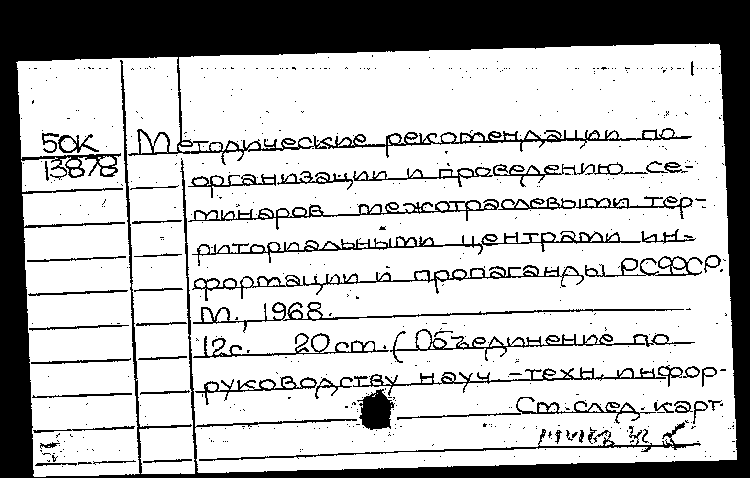 50К Методические рекомендации по
13878 организации и проведению се-
минаров межотраслевыми тер-
риториальными центрами ин-
формации и пропаганды РСФСР.
М., 1968.
12с. 20см. (Объединение по
руководству науч-техн. инфор-
См. след. карт.